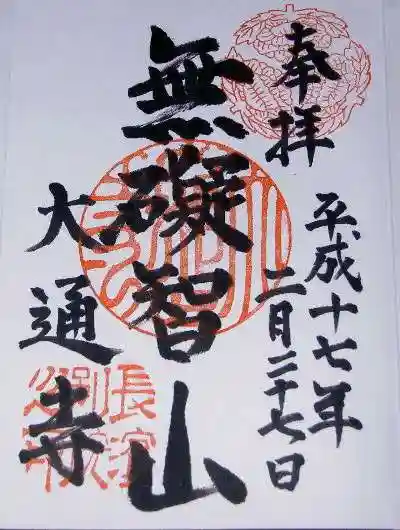 奉拝
平成十七年
二月二十七日
無礙智山
大通寺
長濱
別院